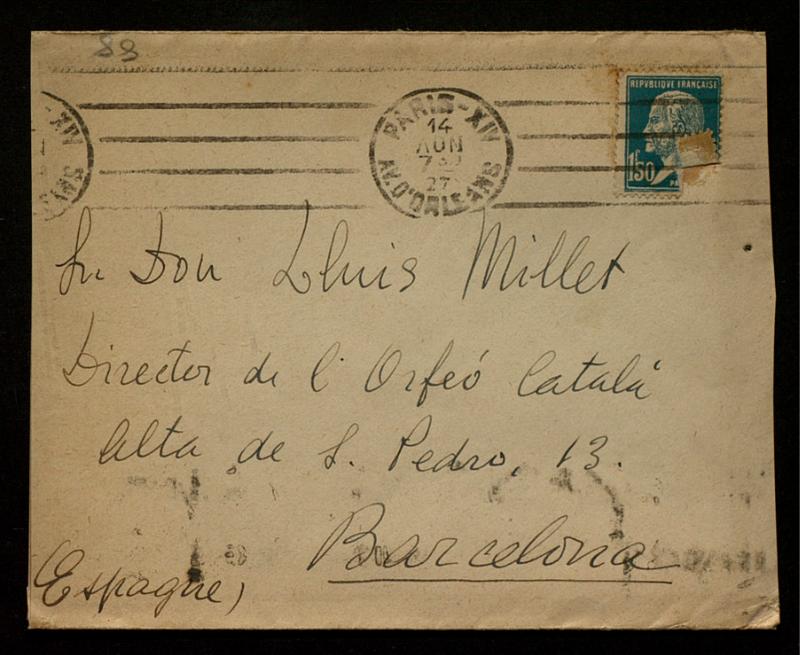 88
REPVBLIQUE FRANÇAISE
1F50
PARIS-XIV
14
AOUN
7 30
27
AV. D'ORLEANS
Sr Don Lluis Millet
Director de l'Orfeó Català
Alta de S. Pedro, 13.
Barcelona
(Espagne)